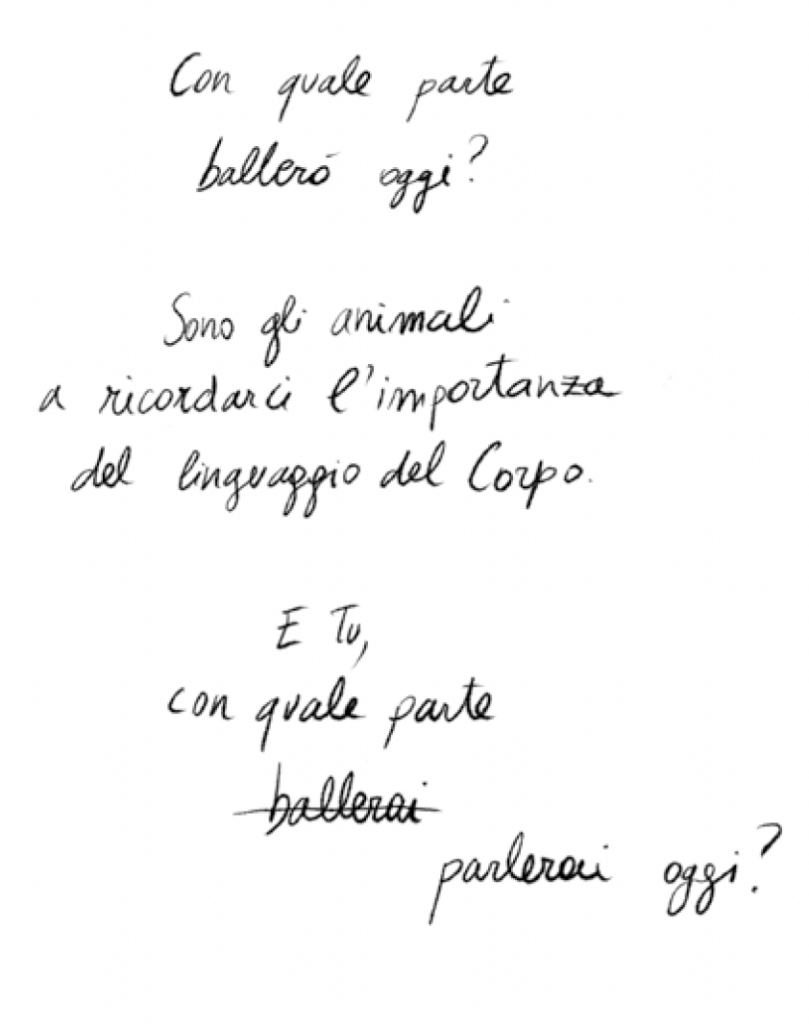 Con quale parte
balleró oggi?
Sono gli animali
a ricordarci l'importanza
del linguaggio del Corpo.
E Tu,
con quale parte
ballerai
parlerai oggi?